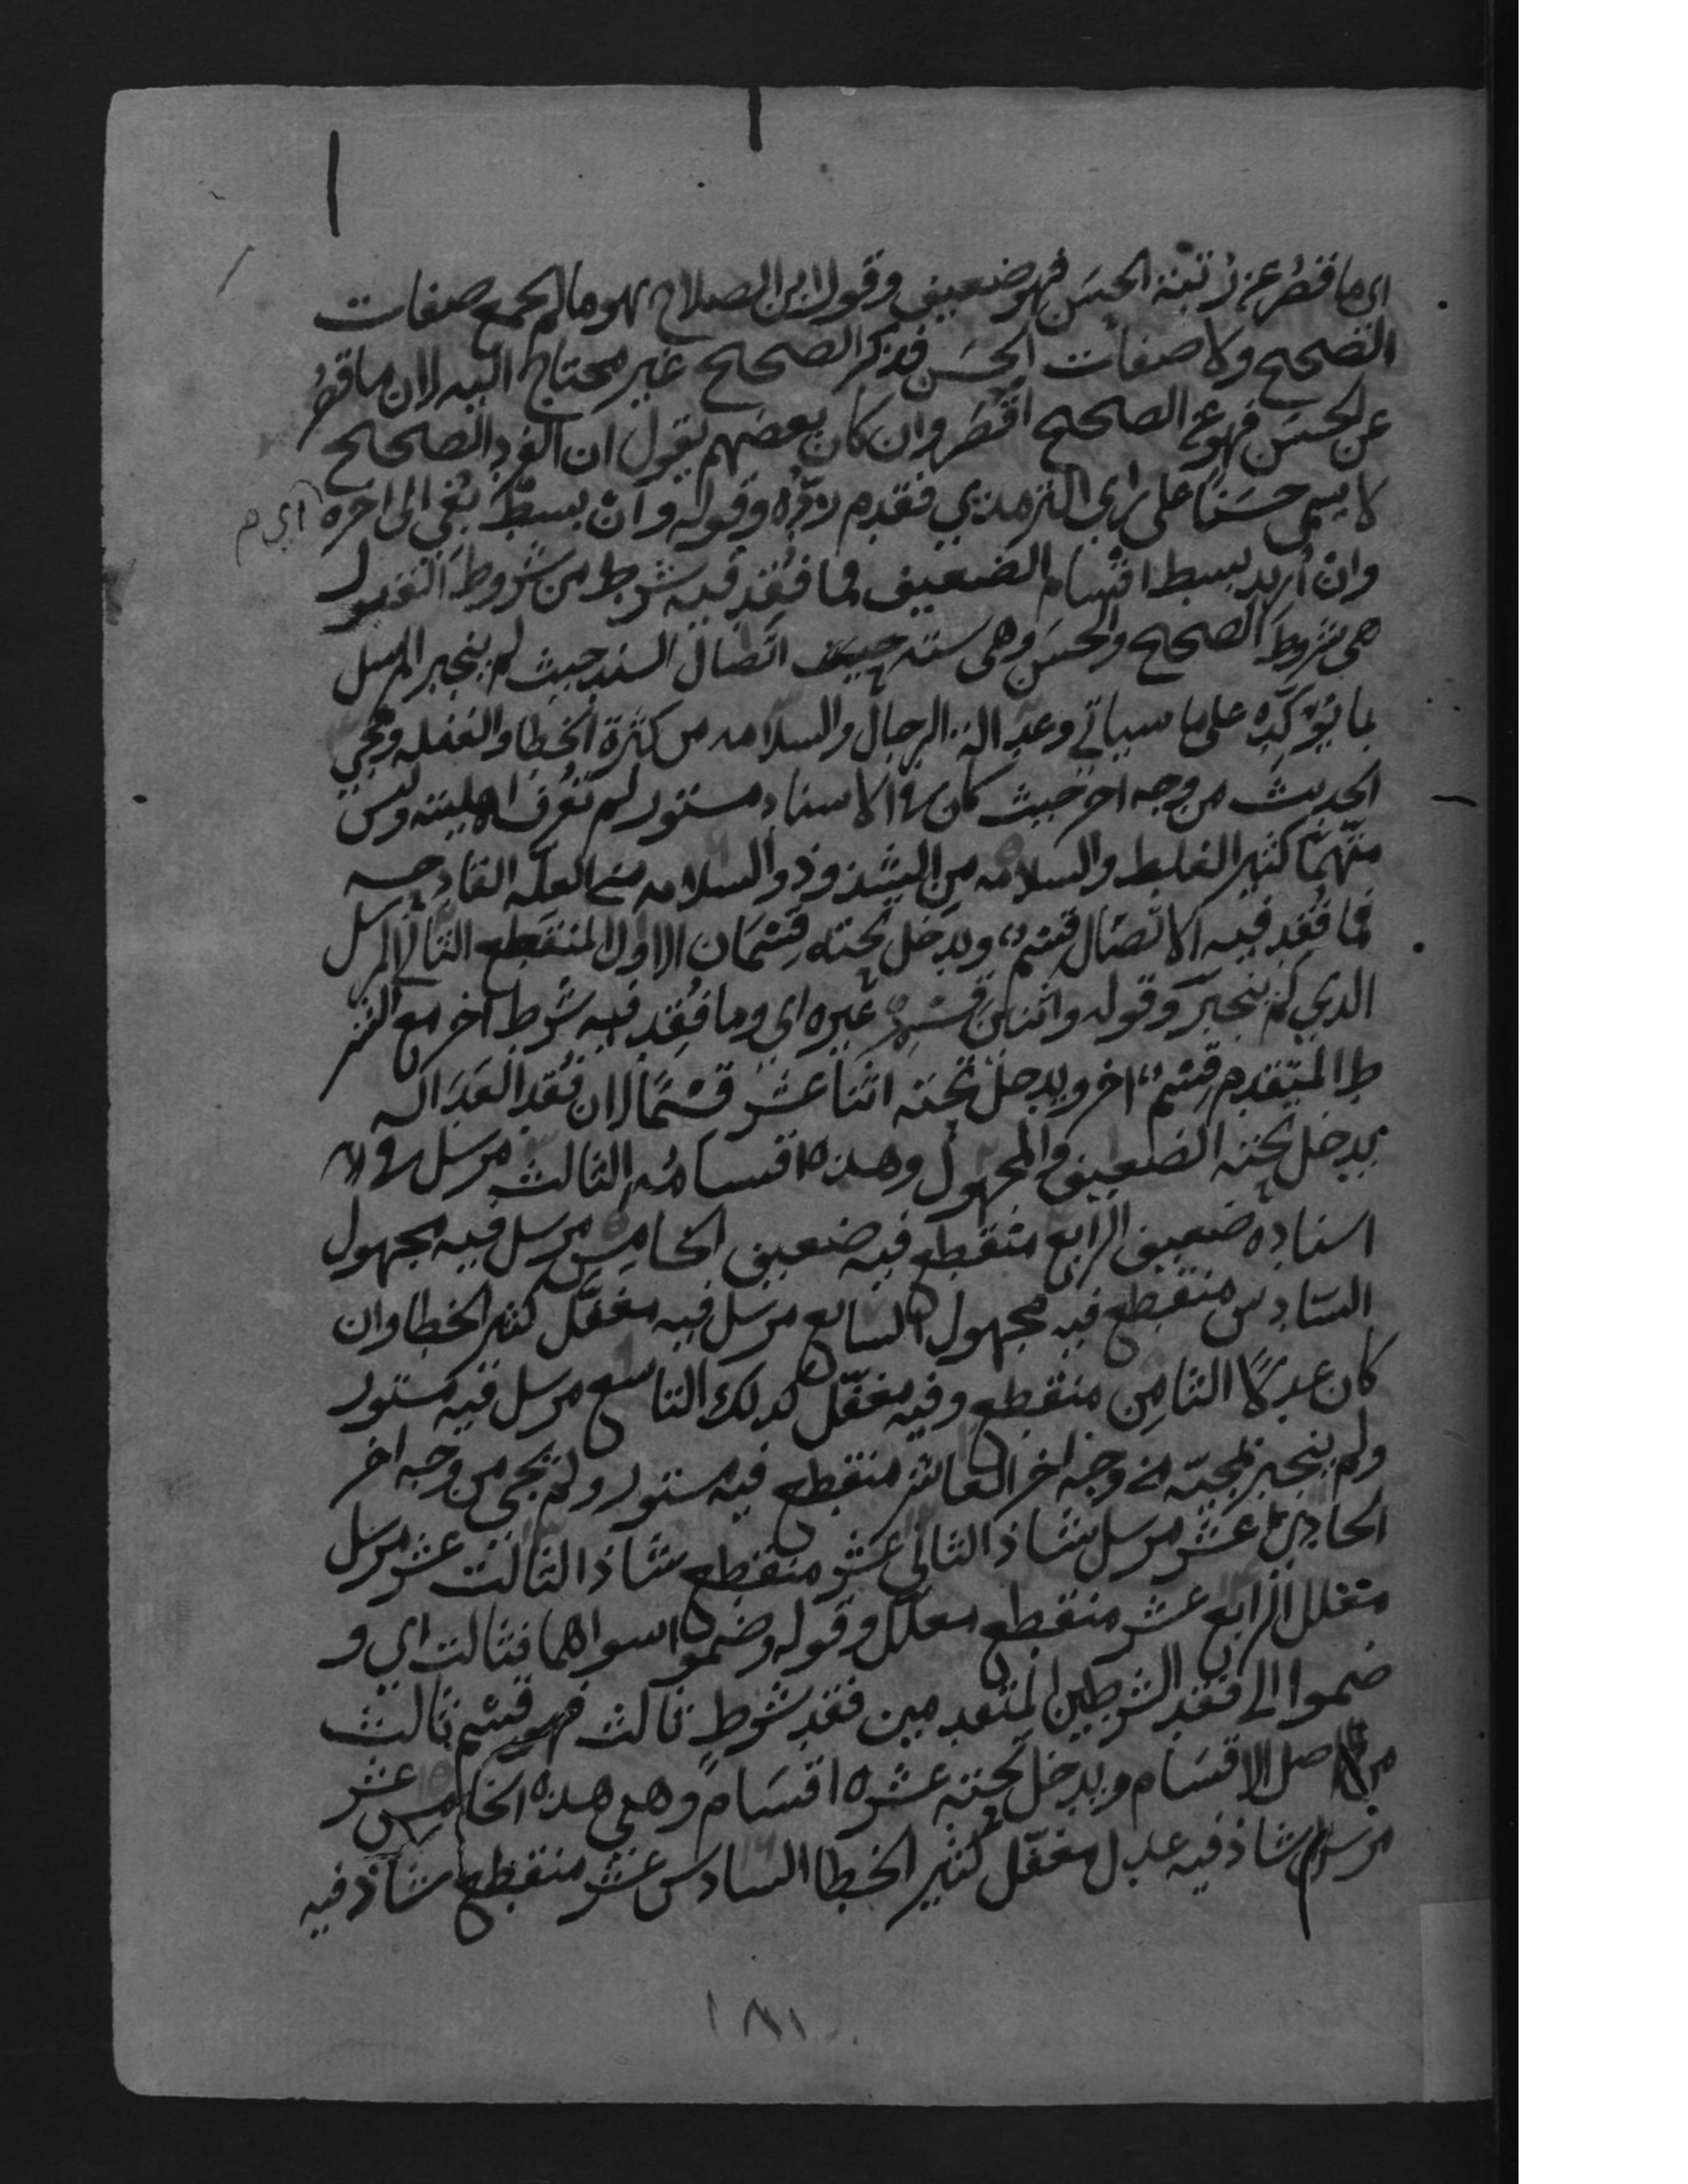 اي ما قصُر عن رتبة الحسَن فهو ضعيف وقول ابن الصلاح هو ما لم يجمع صفات
الصحيح ولا صفات الحسَن فذكر الصحيح غير محتاج اليه لان ما قصُر
عن الحسَن فهو عن الصحيح اقصَر وان كان بعضهم يقول ان الفرد الصحيح
لا يسمى حسَنًا على راي الترمذي فقد تقدم ردّه وقوله وان بسط بُغي الى اخره اي م
وان اُريد بسط اقسام الضعيف فما فُقد فيه شرط من شروط القبول
هي شروط الصحيح والحسَن وهي ستة اتّصال السند حيث لم ينجبر المرسل
بما يؤكّده على ما سياتي وعدالة الرجال والسلامه من كثرة الخطا والغفله ومجي
الحديث من وجه اخر حيث كان في الاسناد مستور لم تعرف اهليته وليس
متّهمًا كثير الغلط والسلامه من الشذوذ والسلامه من العلّه القادحه
فما فُقد فيه الاتّصال قسم ويدخل تحته قسمان الاول المنقطع الثاني المرسل
الدي لم ينجبر وقوله واثنين قسم غيره اي وما فُقِد فيه شرط اخر مع الشر
ط المتقدم قسْم اخر ويدخل تحته اثنا عشر قسمًا لان فقد العدَاله
يدخل تحته الضعيف والمجهول وهذه اقسامه الثالث مرسل في
اسناده ضعيف الرابع منقطع فيه ضعيف الخامس مرسل فيه مجهول
السّادس منقطع فيه مجهول السابع مرسل فيه مغفّل كثير الخطا وان
كان عدلًا الثامن منقطع وفيه مغفّل كدلك التاسع مرسل فيه مستور
ولم ينجبر بمجيّه من وجه اخر العاشر منقطع فيه مستور ولم يجي من وجه اخر
الحادي عشر مرسل شاذ الثاني عشر منقطع شاذ الثالث عشر مرسل
معلل الرابع عشر منقطع معلل وقوله وضموا سواهما فثالث اي و
ضموا الى فقد الشرطين المتقدمين فقد شرط ثالث فهو قسْم ثالث
من اصل الاقسَام ويدخل تحته عشره اقسَام وهي هذه الخامس عشر
مرسل شاذ فيه عدل مغفّل كثير الخطا السادس عشر منقطع شاذ فيه
١٨١